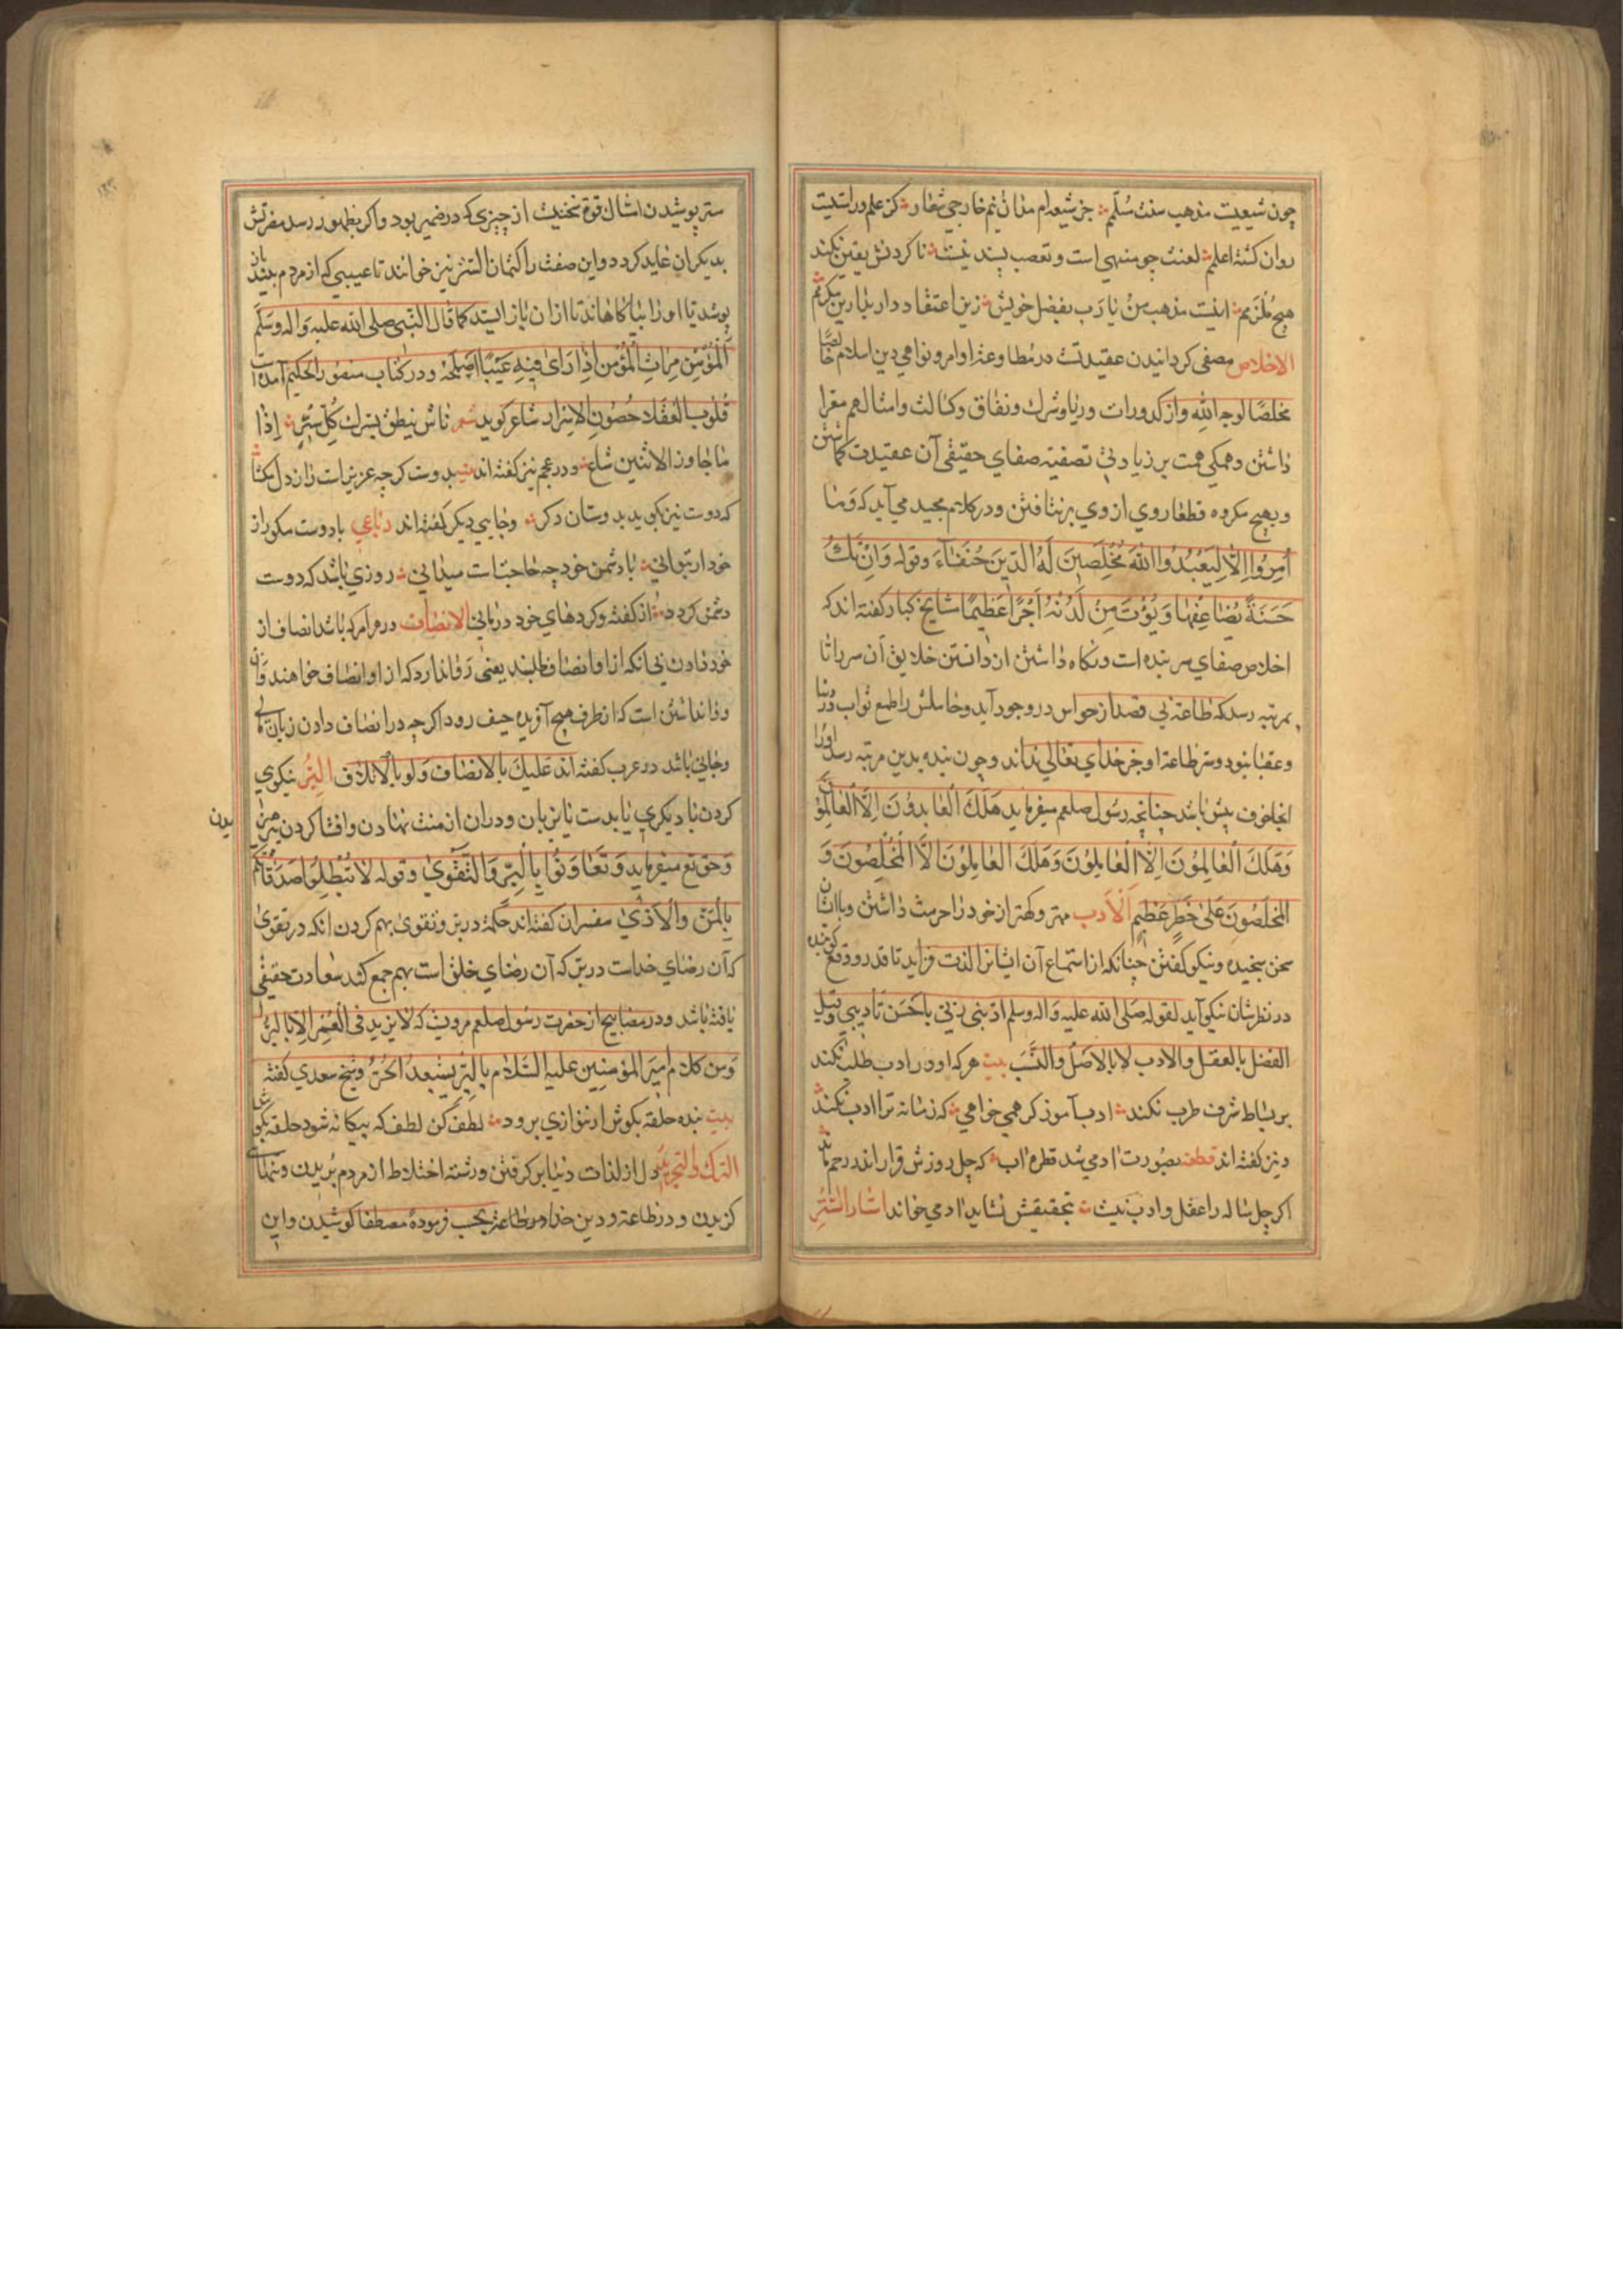 چون شیعیت مذهب سنت سلّم جز شیعه‌ام مدان نیم خارجی شعار کز علم در استیت
روان کشته اعلم لعنت چو منهی است و تعصب پسند نیست ناکردنش یقین نکند
هیچ ملزمم اینست مذهب من یا رب بفضل خویش زین اعتقاد دار بدارین مکرمم
الاخلاص مصفی کردانیدن عقیدتست در مطاوعة اوامر و نواهی دین اسلام خالصًا
مخلصًا لوجه الله و از کدورات و ریا و شرک و نفاق و کسالت و امثالهم مقرا
داشتن و همکی همت بر زیادتی تصفیه صفای حقیقی آن عقیدت کماشتن
و بهیچ مکروه قطعا روی از وی برنتافتن و در کلام مجید می آید که وَمٰا
اُمِرُوا اِلّا لِیَعْبُدُوا اللّهَ مُخْلِصِینَ لَهُ الدّینَ حُنَفٰاءَ و قوله وَاِنْ تَكُ
حَسَنَةً یُضٰاعِفْهٰا وَیُؤْتَ مِنْ لَدُنْهُ اَجْرًا عَظِیمًا مشایخ کبار کفته اند که
اخلاص صفای سر بنده است و نکاه داشتن از دانستن خلایق آن سر را تا
بمرتبه رسد که طاعة بی قصد از حواس در وجود آید و حاملش را طمع ثواب دنیا
و عقبا نبود و سر طاعة او جز خدای تعالی نداند و چون بنده بدین مرتبه رسد او را
انجا خوف بیش باشد چنانچه رسول صلعم میفرماید هَلَكَ الْعٰابِدُونَ اِلَّا الْعٰالِمُونَ
وَهَلَكَ الْعٰالِمُونَ اِلَّا الْعٰامِلُونَ وَهَلَكَ الْعٰامِلُونَ اِلَّا الْمُخْلِصُونَ وَ
الْمُخْلِصُونَ عَلیٰ خَطَرٍ عَظِیمٍ اَلْاَدب مهتر و کهتر از خود را حرمت داشتن و با ایشان
سخن سنجیده و نیکو کفتن چنانکه از استماع آن ایشانرا لذت فزاید تا قدر و وقع کوینده
در نظرشان نیکو آید لقوله صلی الله علیه و اله وسلم ادّبنی ربّی باَحْسَن تَأدیبی و قیل
الفضل بالعقل و الادب لا بالاصل و النَّسَب بیت هرکه او ورا ادب طلب نکند
بر بساط شرف طرب نکند ادب آموز کر همی خواهی که زمانه ترا ادب نکند
و نیز کفته اند قطعه بصورت ادمی شد قطره اب که چل روزش قرار اندر رحم ماند
اکر چل ساله را عقل و ادب نیست بتحقیقش نشاید ادمی خواند استار السّتر
ستر پوشیدن امثال قوة نخنیت از چیزی که در ضمیر بود و اکر بظهور رسد مفرتش
بدیکران عاید کردد و این صفت را کتمان السّر نیز خوانند تا عیبی که از مردم بیند باز
پوشد تا او را بنیاکاهاند تا از ان باز ایستد کما قال النّبی صلی الله علیه و اله وسلم
اَلْمُؤْمِن مِرٰات الْمُؤْمِن اِذٰا رَای فِیهِ عَیْبًا اَصْلَحَهُ و در کتاب منصور الحکیم آمده است
قُلوب العُقَلاء حُصُون الاسرار شاعر کوید شعر ناس ینطق بسرك كُلّ سِرٍّ اِذٰا
مٰا جٰاوز الاثنین شاع و در عجم نیز کفته اند بیت بدوست کرچه عزیز است راز دل مکشا
که دوست نیز بکوید بدوستان دکر و جایی دیکر کفته اند رباعی با دوست مکو راز
خود ار بتوانی با دشمن خود چه حاجتست میدانی روزی باشد که دوست
دشمن کردد از کفته و کردهای خود درمانی الانصاف در هر امر که باشد انصاف از
خود دادن بی آنکه از او انصاف طلبند یعنی روا ندارد که از او انصاف خواهند و آن
روا نداشتن است که از طرف هیچ آفریده حیف رود اکرچه در انصاف دادن زیان مالی
و جانی باشد در عرب کفته اند عَلَیكَ بالانصاف وَلَو بالاتلاف اَلبِرّ نیکوی
کردن با دیکری یا بدست یا بزبان و در ان از منت نهادن و افشا کردن پرهیزیدن
و حق تع میفرماید وَ تَعٰاوَنُوا بِالْبِرِّ وَالتَّقْوٰی و قوله لٰا تُبْطِلُوا صَدَقٰاتِکُم
بِالْمَنّ وَالْاَذٰی مفسران کفته اند حکمة در بر و تقوی بهم کردن انکه در تقوی
که آن رضای خداست در بر که آن رضای خلق است بهم جمع کند سعادت حقیقی
یافته باشد و در مصابیح از حضرت رسول صلعم مرویست که لا یزید فی العُمر الا بالبرّ
وَمن کلام امیر المؤمنین علیه السّلام بِالبرّ یُسْتَعبدُ الحُرّ و شیخ سعدی کفته
بیت بنده حلقه بکوش ار ننوازی برود لطف کن لطف که بیکانه شود حلقه بکوش
الترك و التجرید دل از لذات دنیا بر کرفتن و رشته اختلاط از مردم بریدن و تنهایی
کزیدن و در طاعة و دین خدا و در طاعتر بحسب فرموده مصطفا کوشیدن و این